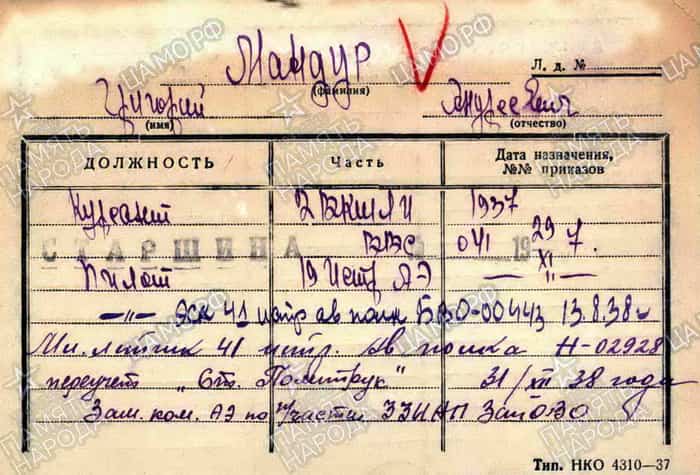 Мандур
Л. д. №
(фамилия)
Григорий Андреевич
(имя) (отчество)
ДОЛЖНОСТЬ Часть Дата назначения, №№ приказов
Курсант 2 ВКШЛ 1937
СТАРШИНА ВВС 041 19 29/XI 7.
Пилот 19 Истр АЭ — " —
— " — эск 41 истр ав полк БВО-00443 13.8.38
Мл. летчик 41 истр. ав полка Н-02928
переучет „Отл. Политрук" 31/XII 38 года
Зам. ком. АЭ по п/части ЗапОВО
Тип. НКО 4310—37
ПАМЯТЬ НАРОДА
ЦАМО.РФ